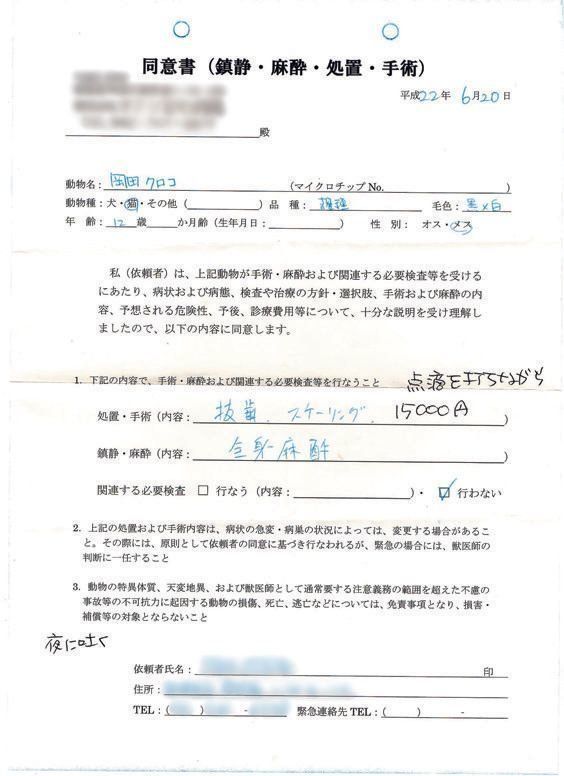 同意書（鎮静・麻酔・処置・手術）
平成22年 6月20日
殿
動物名：岡田クロコ （マイクロチップ No. ）
動物種：犬・猫・その他（ ）品 種： 雑種 毛色：黒×白
年 齢：12歳 か月齢（生年月日： ） 性 別： オス・メス
私（依頼者）は、上記動物が手術・麻酔および関連する必要検査等を受ける
にあたり、病状および病態、検査や治療の方針・選択肢、手術および麻酔の内
容、予想される危険性、予後、診療費用等について、十分な説明を受け理解し
ましたので、以下の内容に同意します。
1. 下記の内容で、手術・麻酔および関連する必要検査等を行なうこと 点滴を打ちながら
処置・手術（内容： 抜歯、スケーリング、 15000円 ）
鎮静・麻酔（内容： 全身麻酔 ）
関連する必要検査 □ 行なう（内容： ）・ ☑ 行わない
2. 上記の処置および手術内容は、病状の急変・病巣の状況によっては、変更する場合があるこ
と。その際には、原則として依頼者の同意に基づき行なわれるが、緊急の場合には、獣医師の
判断に一任すること
3. 動物の特異体質、天変地異、および獣医師として通常要する注意義務の範囲を超えた不慮の
事故等の不可抗力に起因する動物の損傷、死亡、逃亡などについては、免責事項となり、損害・
補償等の対象とならないこと
夜に吐く
依頼者氏名： 印
住所：
TEL：( ) - 緊急連絡先 TEL：( ) -